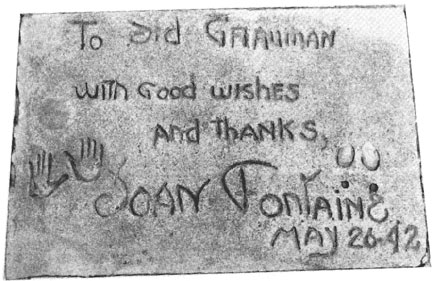 To Sid GRAUMAN
with Good wishes
And THANKS,
JOAN FonTAinE
MAY 26-42